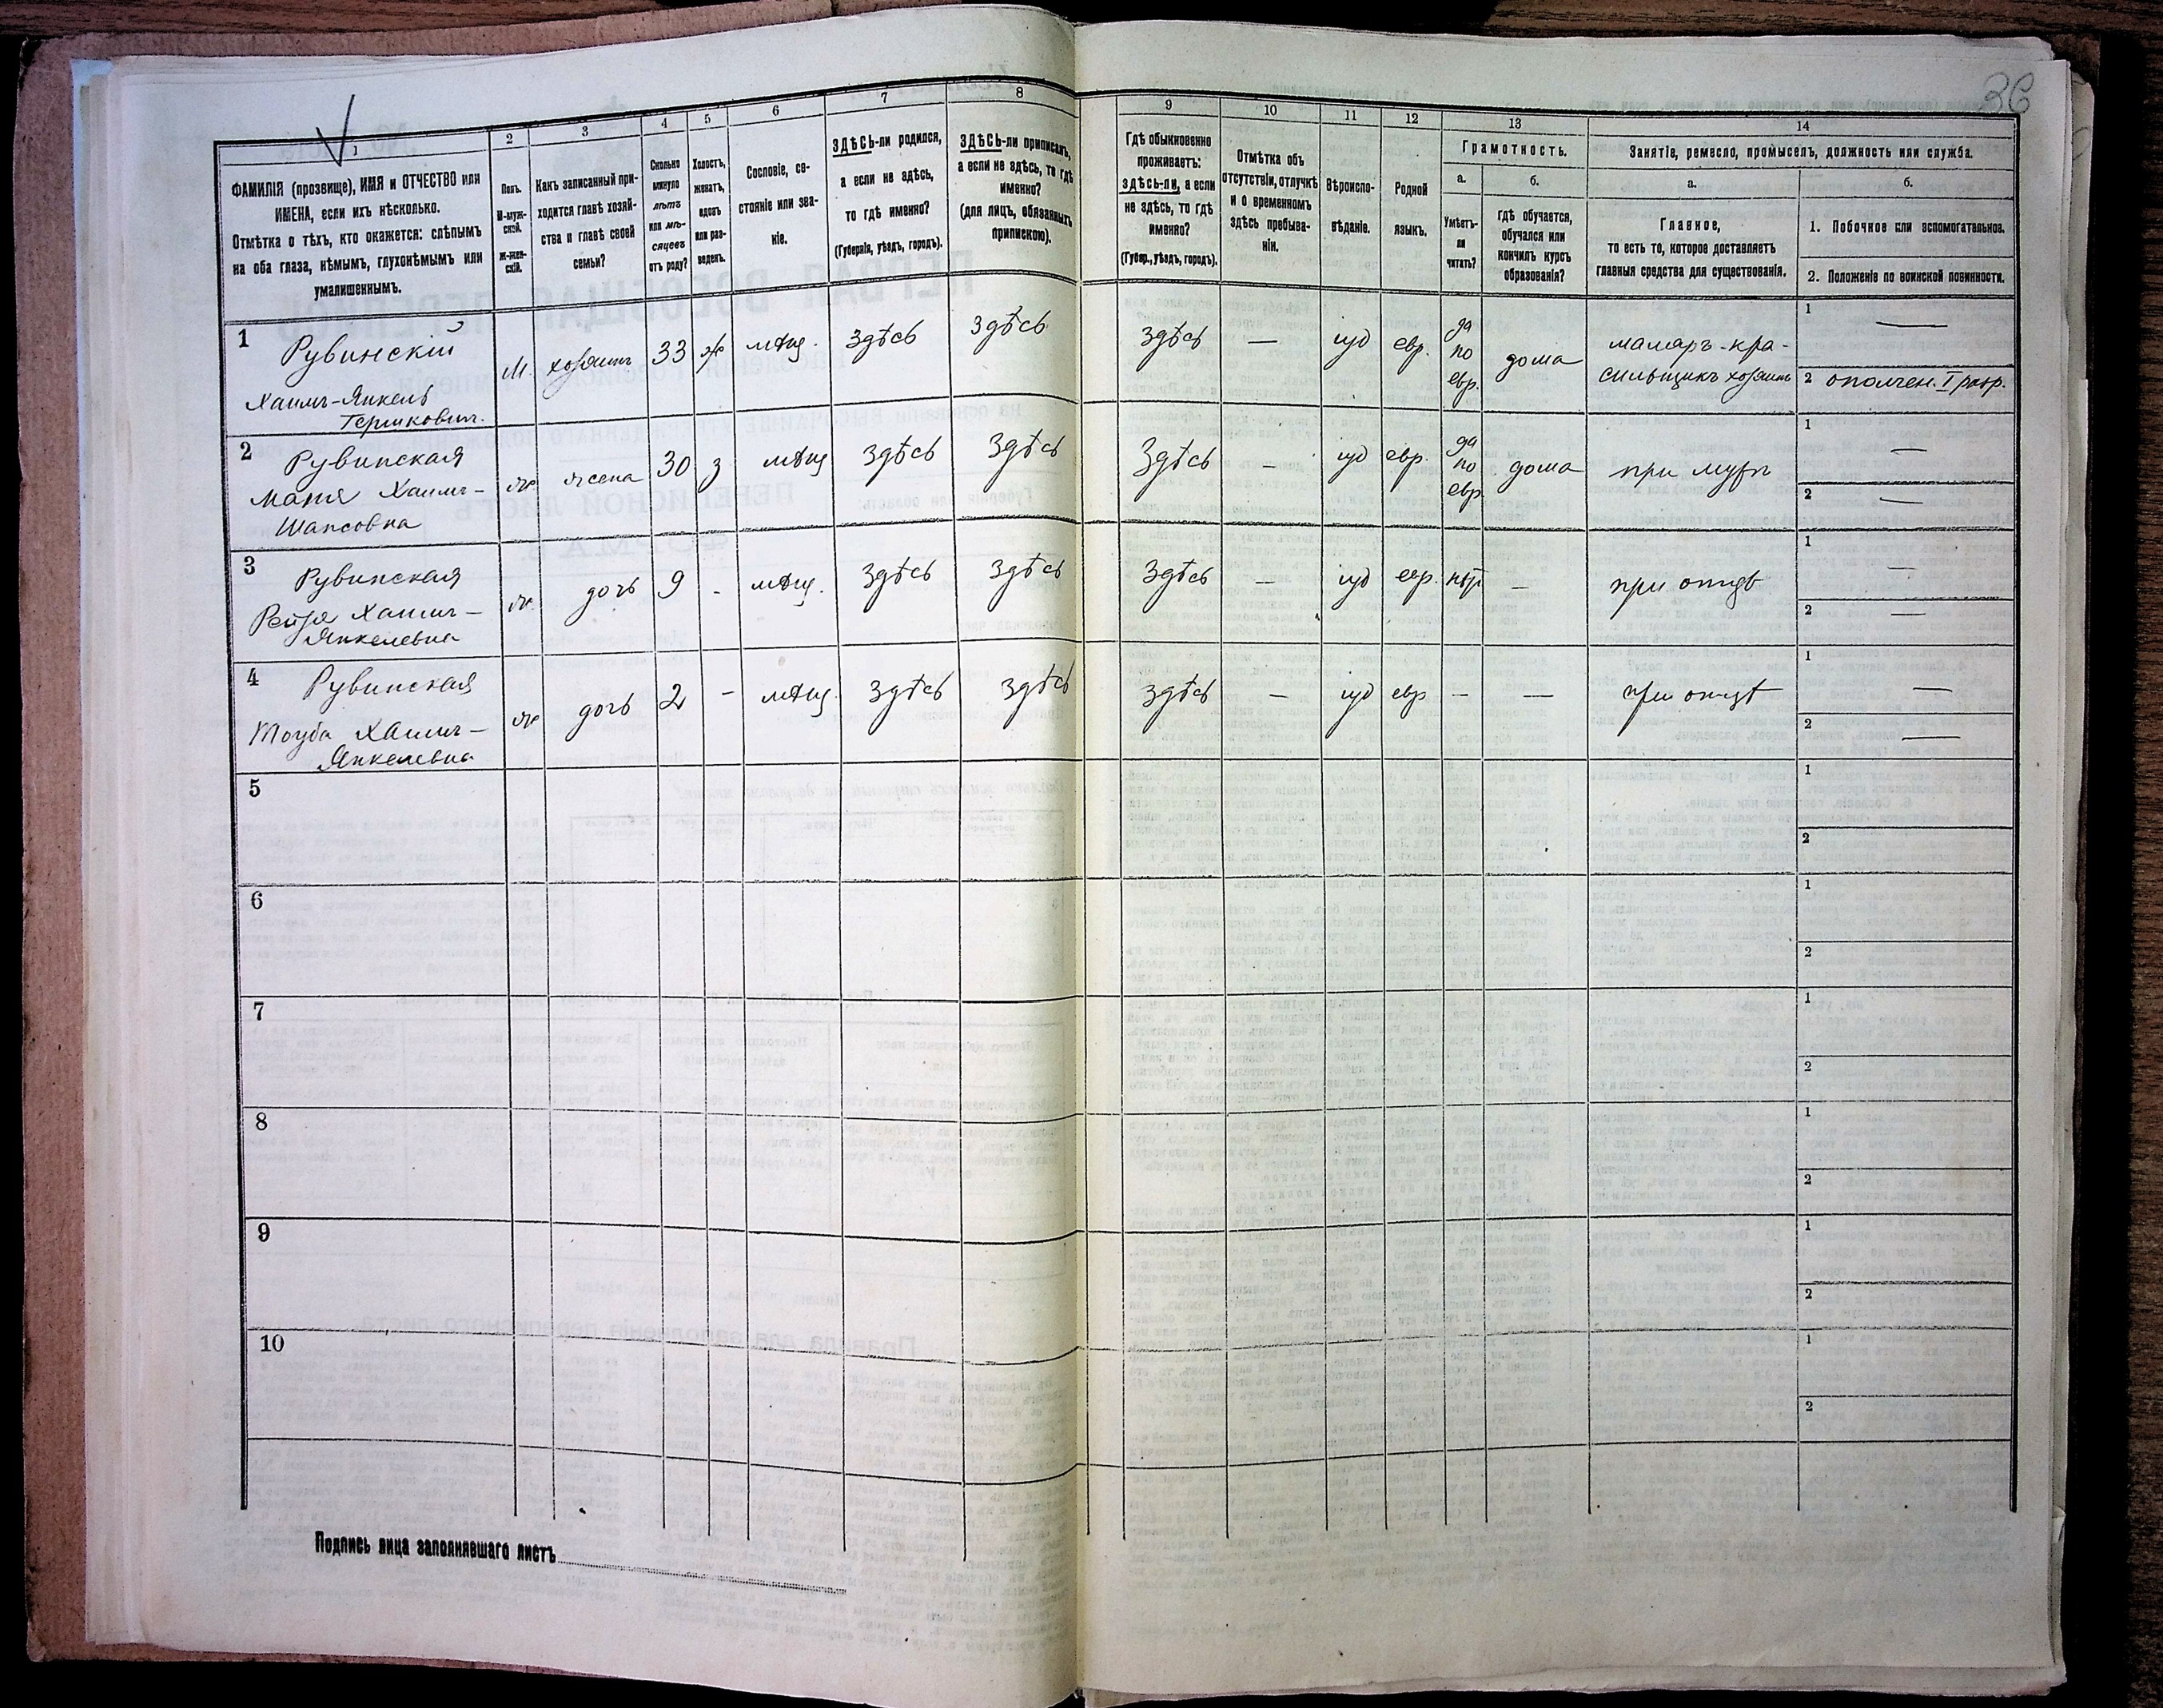 36
1
2
3
4
5
6
7
8
9
10
11
12
13
14
ФАМИЛІЯ (прозвище), ИМЯ и ОТЧЕСТВО или
ИМЕНА, если ихъ нѣсколько.
Отмѣтка о тѣхъ, кто окажется: слѣпымъ
на оба глаза, нѣмымъ, глухонѣмымъ или
умалишеннымъ.
Полъ.
М-муж-
ской.
Ж-жен-
скій.
Какъ записанный при-
ходится главѣ хозяй-
ства и главѣ своей
семьи?
Сколько
минуло
лѣтъ
или мѣ-
сяцевъ
отъ роду?
Холостъ,
женатъ,
вдовъ
или раз-
веденъ.
Сословіе, со-
стояніе или зва-
ніе.
ЗДѢСЬ-ли родился,
а если не здѣсь,
то гдѣ именно?
(Губернія, уѣздъ, городъ).
ЗДѢСЬ-ли приписанъ,
а если не здѣсь, то гдѣ
именно?
(для лицъ, обязанныхъ
припискою).
Гдѣ обыкновенно
проживаетъ:
здѣсь-ли, а если
не здѣсь, то гдѣ
именно?
(Губер., уѣздъ, городъ).
Отмѣтка объ
отсутствіи, отлучкѣ
и о временномъ
здѣсь пребыва-
ніи.
Вѣроиспо-
вѣданіе.
Родной
языкъ.
Грамотность.
а.
б.
Умѣетъ-
ли
читать?
гдѣ обучается,
обучался или
кончилъ курсъ
образованія?
Занятіе, ремесло, промыселъ, должность или служба.
а.
б.
Главное,
то есть то, которое доставляетъ
главныя средства для существованія.
1. Побочное или вспомогательное.
2. Положеніе по воинской повинности.
1
Рувинскій
Хаимъ-Янкель
Гершковичъ.
М. хозяинъ 33 ж мѣщ. здѣсь здѣсь
здѣсь — іуд евр.
да
по
евр.
дома
маляръ-кра-
сильщикъ хозяинъ
1 —
2 ополчен. I разр.
2
Рувинская
Матя Хаимъ-
Шапсовна
ж жена 30 з мѣщ здѣсь здѣсь
здѣсь — іуд евр.
да
по
евр
дома
при мужѣ
1 —
2 —
3
Рувинская
Рейзя Хаимъ-
Янкелевна
ж. дочь 9 - мѣщ. здѣсь здѣсь
здѣсь — іуд евр. нѣт — при отцѣ
1 —
2 —
4
Рувинская
Тоуба Хаимъ-
Янкелевна
ж дочь 2 - мѣщ. здѣсь здѣсь
здѣсь — іуд евр — — при отцѣ
1 —
2 —
5
1
2
6
1
2
7
1
2
8
1
2
9
1
2
10
1
2
Подпись лица заполнявшаго листъ